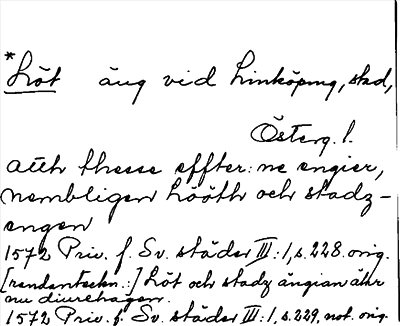 *Löt äng vid Linköping, stad,
Österg. l.
att thesse effter:ne engier,
nembligen Lööth och stadz-
engen
1572 Priv. f. Sv. städer III:1, s. 228. orig.
[randanteckn.:] Löt och stadz ängian ähr
nu diurehagen.
1572 Priv. f. Sv. städer III:1, s. 229, not. orig.